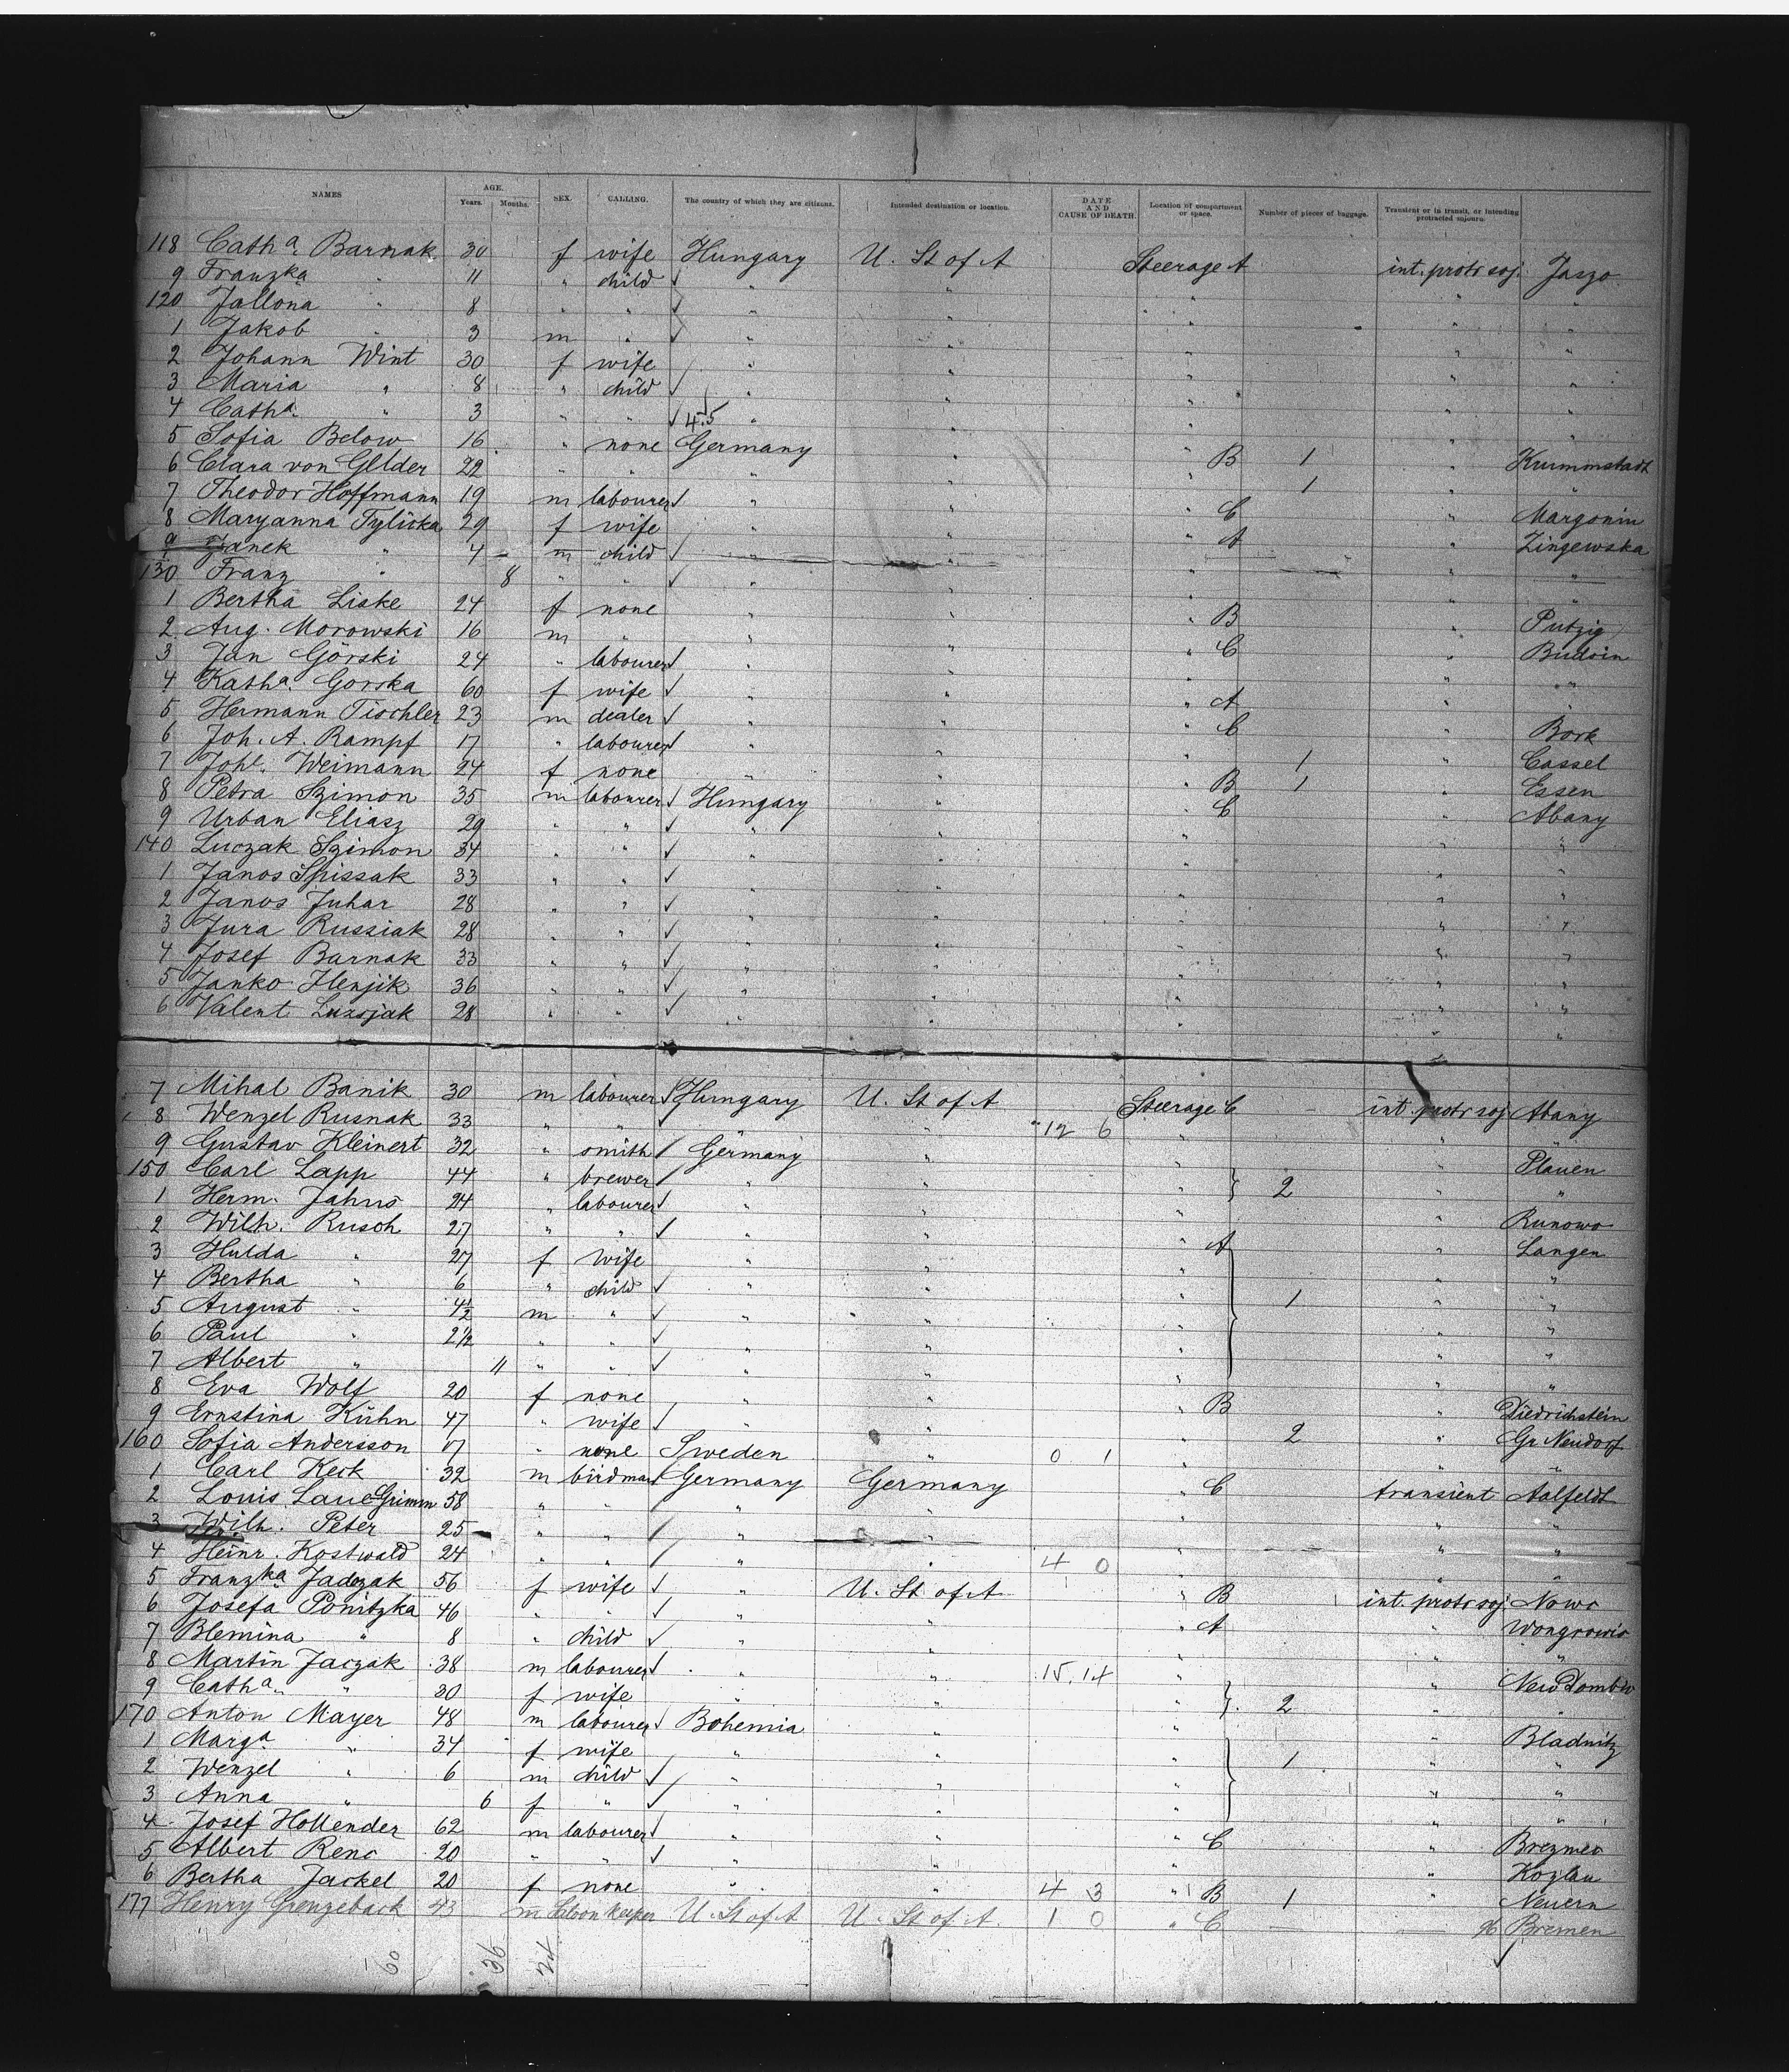 NAMES AGE. Years. Months. SEX. CALLING. The country of which they are citizens. Intended destination or location. DATE AND CAUSE OF DEATH. Location of compartment or space. Number of pieces of baggage. Transient or in transit, or intending protracted sojourn.
118 Cath a. Barnak 30 f wife Hungary U. St of A Steerage A int. protr soj. Jaszo
9 Franzka " 11 " child " " " " "
120 Jallona " 8 " " " " " " "
1 Jakob " 3 m " " " " " "
2 Johann Wint 30 f wife " " " " "
3 Maria " 8 " child " " " " "
4 Catha. " 3 " " 4.5 " " " " "
5 Sofia Below 16 " none Germany " " B 1 "
6 Clara von Gelder 22 " " " " " 1 "
7 Theodor Hoffmann 19 m labourer " " " C " Margonin
8 Maryanna Tylicka 29 f wife " " " A " Zingewska
9 Janek " 4 m child " " " " "
130 Franz " 8 " " " " " " "
1 Bertha Liske 24 f none " " " B " Putzig
2 Aug. Morowski 16 m " " " " C " Budsin
3 Jan Görski 24 " labourer " " " " "
4 Katha. Gorska 60 f wife " " " A " "
5 Hermann Tischler 23 m dealer " " " C " Bork
6 Joh. A. Rampf 17 " labourer " " " 1 " Cassel
7 Johe. Weimann 24 f none " " " B 1 " Essen
8 Petra Szimon 35 m labourer Hungary " " C " Abany
9 Urban Eliasz 29 " " " " " " "
140 Luczak Szimon 34 " " " " " " "
1 Janos Spissak 33 " " " " " " "
2 Janos Juhar 28 " " " " " " "
3 Jura Russiak 28 " " " " " " "
4 Josef Barnak 33 " " " " " " "
5 Janko Henjik 36 " " " " " " "
6 Valent Luxsjak 28 " " " " " " "
7 Mihal Banik 30 m labourer Hungary U. St of A Steerage C int. protr soj Abany
8 Wenzel Rusnak 33 " " " " 12 6 " " "
9 Gustav Kleinert 32 " smith Germany " " " Plauen
150 Carl Lapp 44 " brewer " " " 2 " "
1 Herm. Jahns 24 " labourer " " " " Runowo
2 Wilh. Rusch 27 " " " " " A " Langen
3 Hulda " 27 f wife " " " " "
4 Bertha " 6 " child " " " 1 " "
5 August " 4½ m " " " " " "
6 Paul " 2½ " " " " " " "
7 Albert " 11 " " " " " " "
8 Eva Wolf 20 f none " " " B " Diedrichstein
9 Ernstina Kühn 47 " wife " " " 2 " Gr Neudorf
160 Sofia Andersson 17 " none Sweden " 0 1 " " "
1 Carl Keck 32 m birdman Germany Germany " C transient Aalfeldt
2 Louis Laue Grimm 58 " " " " " " "
3 Wilh. Peter 25 " " " " " " "
4 Heinr. Kostwald 24 " " " " 4 0 " " "
5 Franzka Jadczak 56 f wife " U. St of A " B int. protr soj. Nowo
6 Josefa Ponitzka 46 " " " " " A " Wongrowic
7 Blemina " 8 " child " " " " "
8 Martin Jaczak 38 m labourer " " 15.14 " "
9 Catha. " 30 f wife " " " 2 " "
170 Anton Mayer 48 m labourer Bohemia " " " Bladnitz
1 Marga " 34 f wife " " " 1 " "
2 Wenzel " 6 m child " " " " "
3 Anna " 6 f " " " " " "
4 Josef Hollender 62 m labourer " " " C "
5 Albert Renc 20 " " " " " " Kozlau
6 Bertha Jackel 20 f none " " 4 3 " B 1 " Neuern
177 Henry Grenzeback 43 m Saloon keeper U. St of A U. St of A. 1 0 " C 96 Bremen
60 36 24